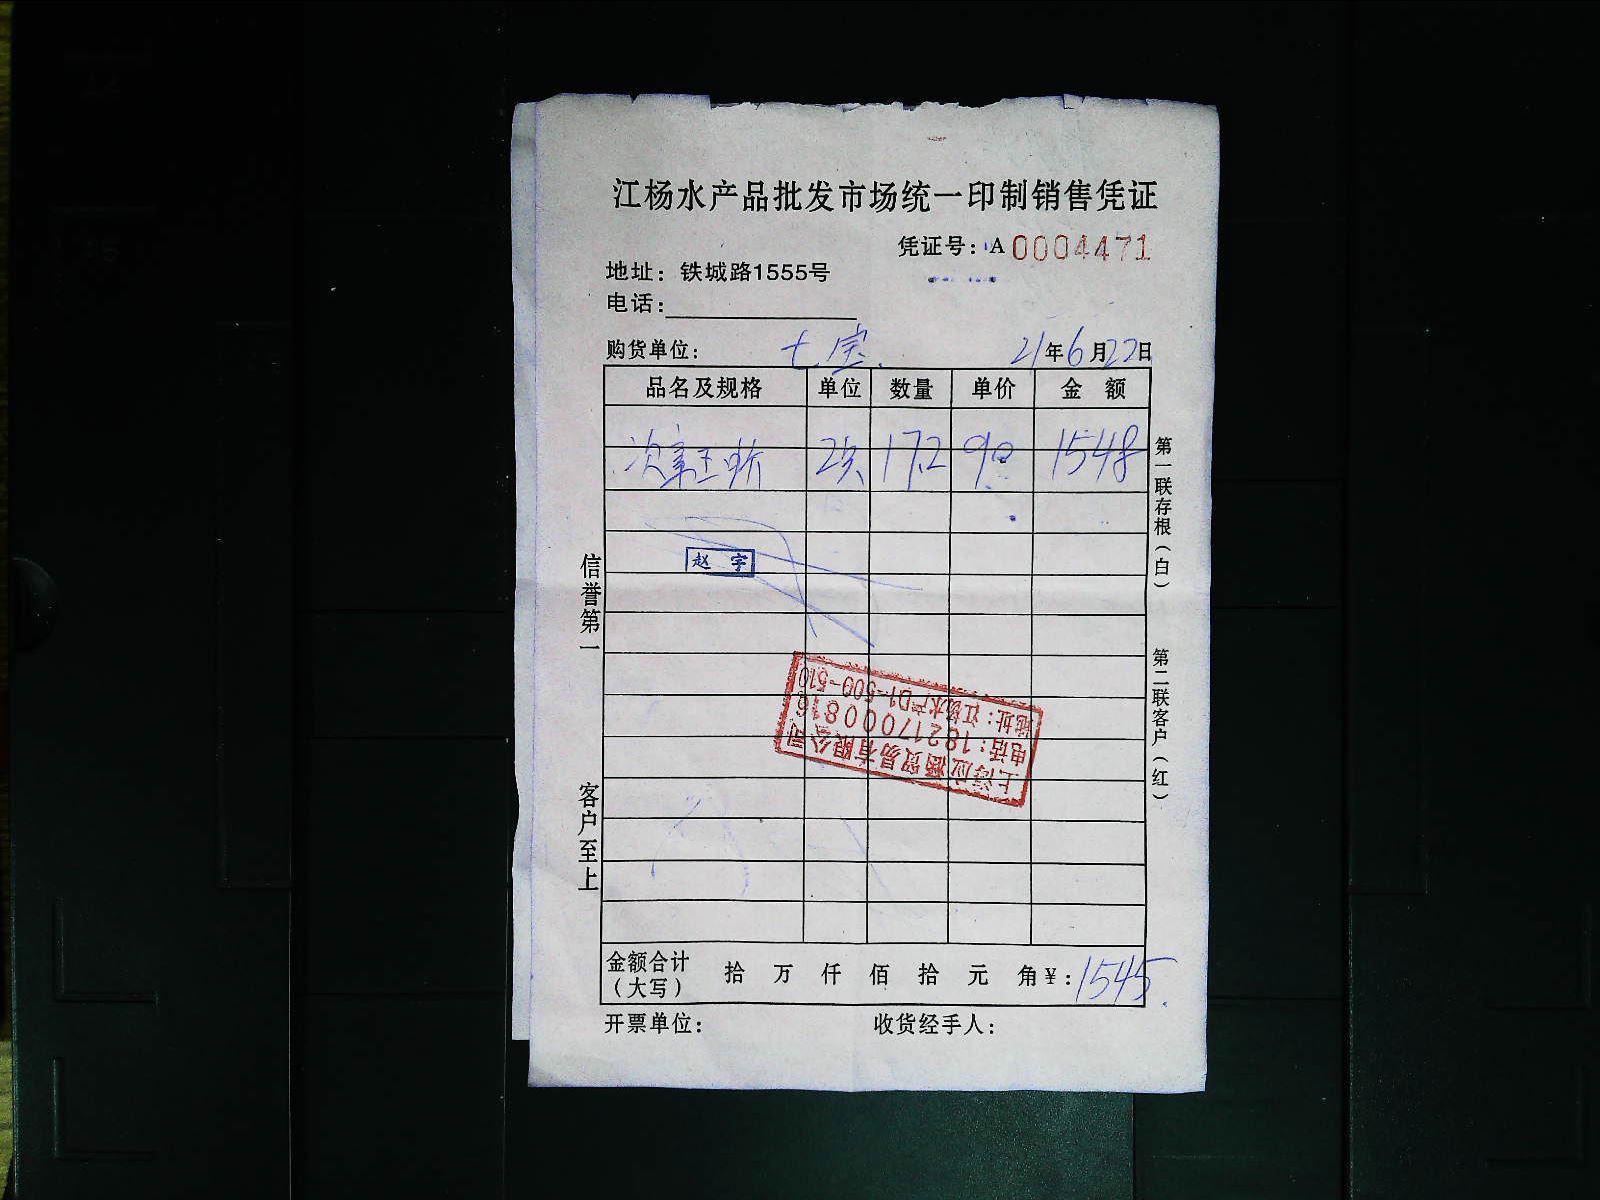 江杨水产品批发市场统一印制销售凭证
凭证号：A 0004471
地址：铁城路1555号
电话：
购货单位： 七宝 21年6月22日
品名及规格 单位 数量 单价 金 额
17.2 90 1548
赵 宇
上海应涵贸易有限公司
电话：18217000816
地址：江杨水产D1-509-510
金额合计（大写） 拾 万 仟 佰 拾 元 角 ¥：1545
开票单位： 收货经手人：
信誉第一
客户至上
第一联存根（白）
第二联客户（红）